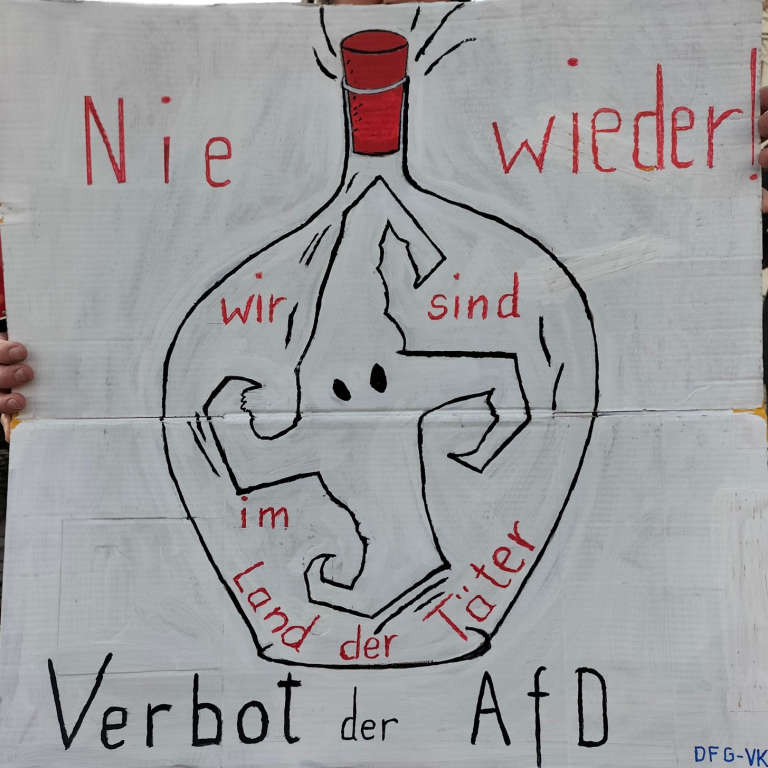 Nie wieder!
wir sind
im
Land der Täter
Verbot der AfD
DFG-VK